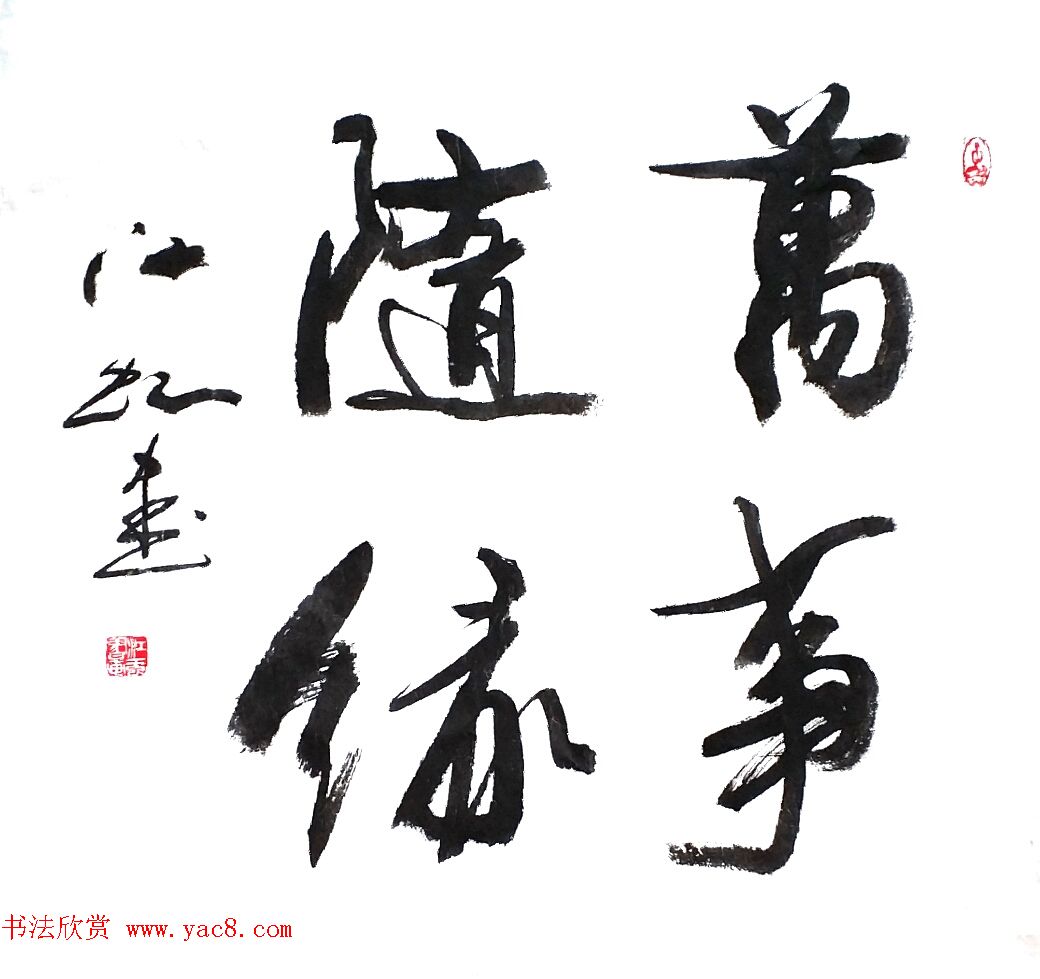 萬事
隨緣
书法欣赏 www.yac8.com